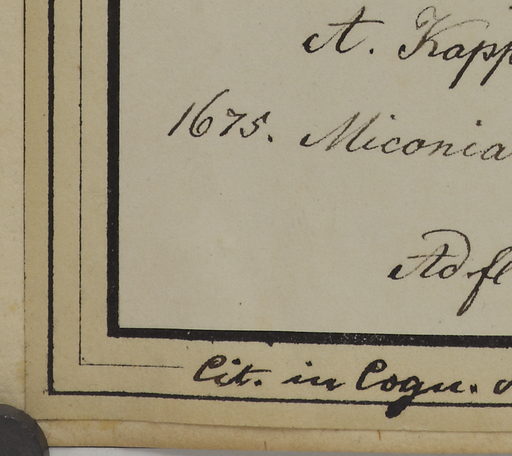 A. Kapp
1675. Miconia
Ad fl
Cit. in Cogn.